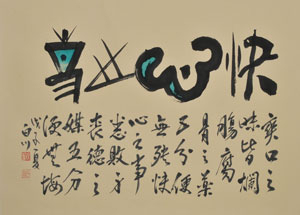 快心
爽口之
味皆爛
腸腐
骨之藥
五分便
無殃快
心之事
悉敗身
喪德之
媒五分
便無悔
夏
白川